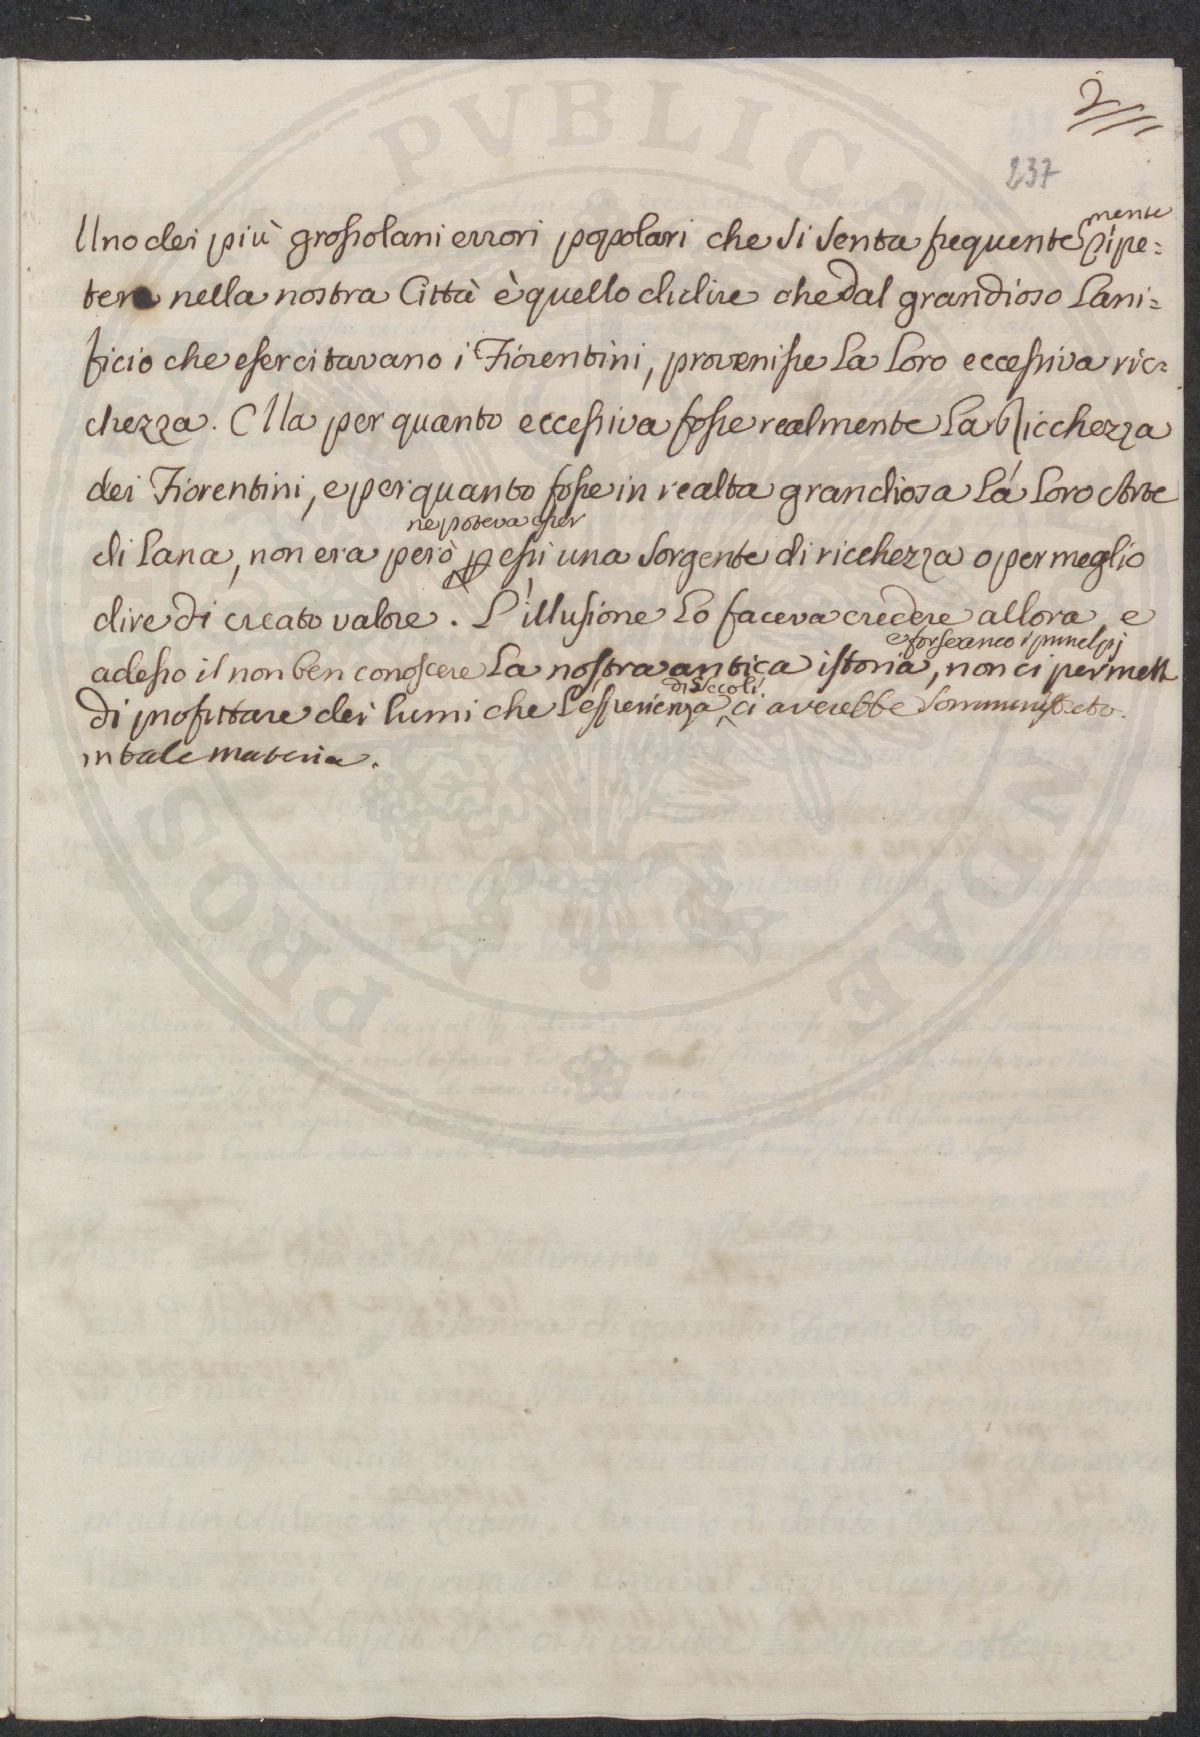 2
237
Uno dei più grossolani errori popolari che si senta frequentemente ripe=
tere nella nostra Città è quello di dire che dal grandioso Lani=
ficio che esercitavano i Fiorentini, provenisse la loro eccessiva ric=
chezza. Ma per quanto eccessiva fosse realmente la Ricchezza
dei Fiorentini, e per quanto fosse in realta grandiosa la loro Arte
ne poteva esser
di Lana, non era però p essi una sorgente di ricchezza o per meglio
dire di creato valore. L'illusione lo faceva credere allora, e
e forse anco i principj
adesso il non ben conoscere la nostra antica istoria, non ci permett
di Seccoli
di profittare dei lumi che l'esperienza ci averebbe somministrato
in tale materia.
PROSPERITATI PVBLICAE